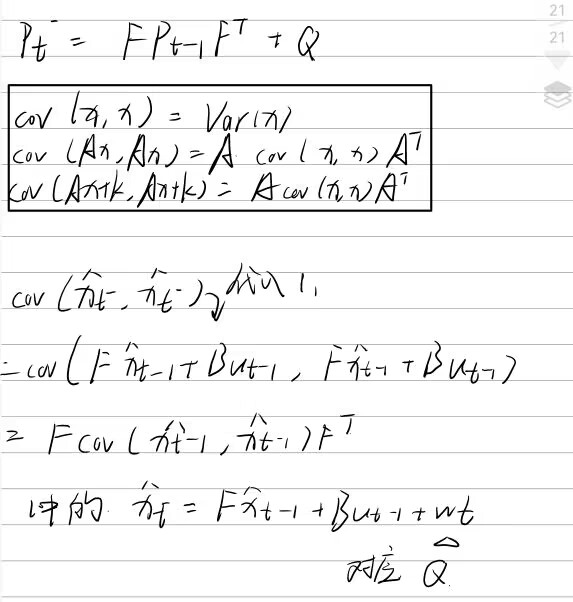 21
21
P_t^- = F P_{t-1} F^T + Q
cov (x, x) = Var(x)
cov (Ax, Ax) = A cov (x, x) A^T
cov (Ax+k, Ax+k) = A cov(x,x) A^T
cov (x̂_t^-, x̂_t^-) 代入 1,
= cov (F x̂_{t-1} + B u_{t-1}, F x̂_{t-1} + B u_{t-1})
= F cov (x̂_{t-1}, x̂_{t-1}) F^T
1中的 x̂_t^- = F x̂_{t-1} + B u_{t-1} + w_t
对应 Q